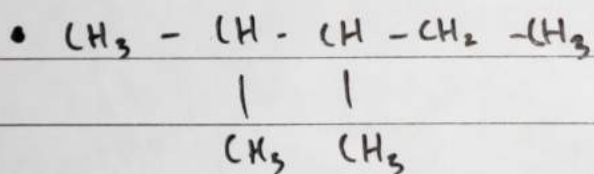 • CH₃ - CH - CH - CH₂ - CH₃
| |
CH₃ CH₃